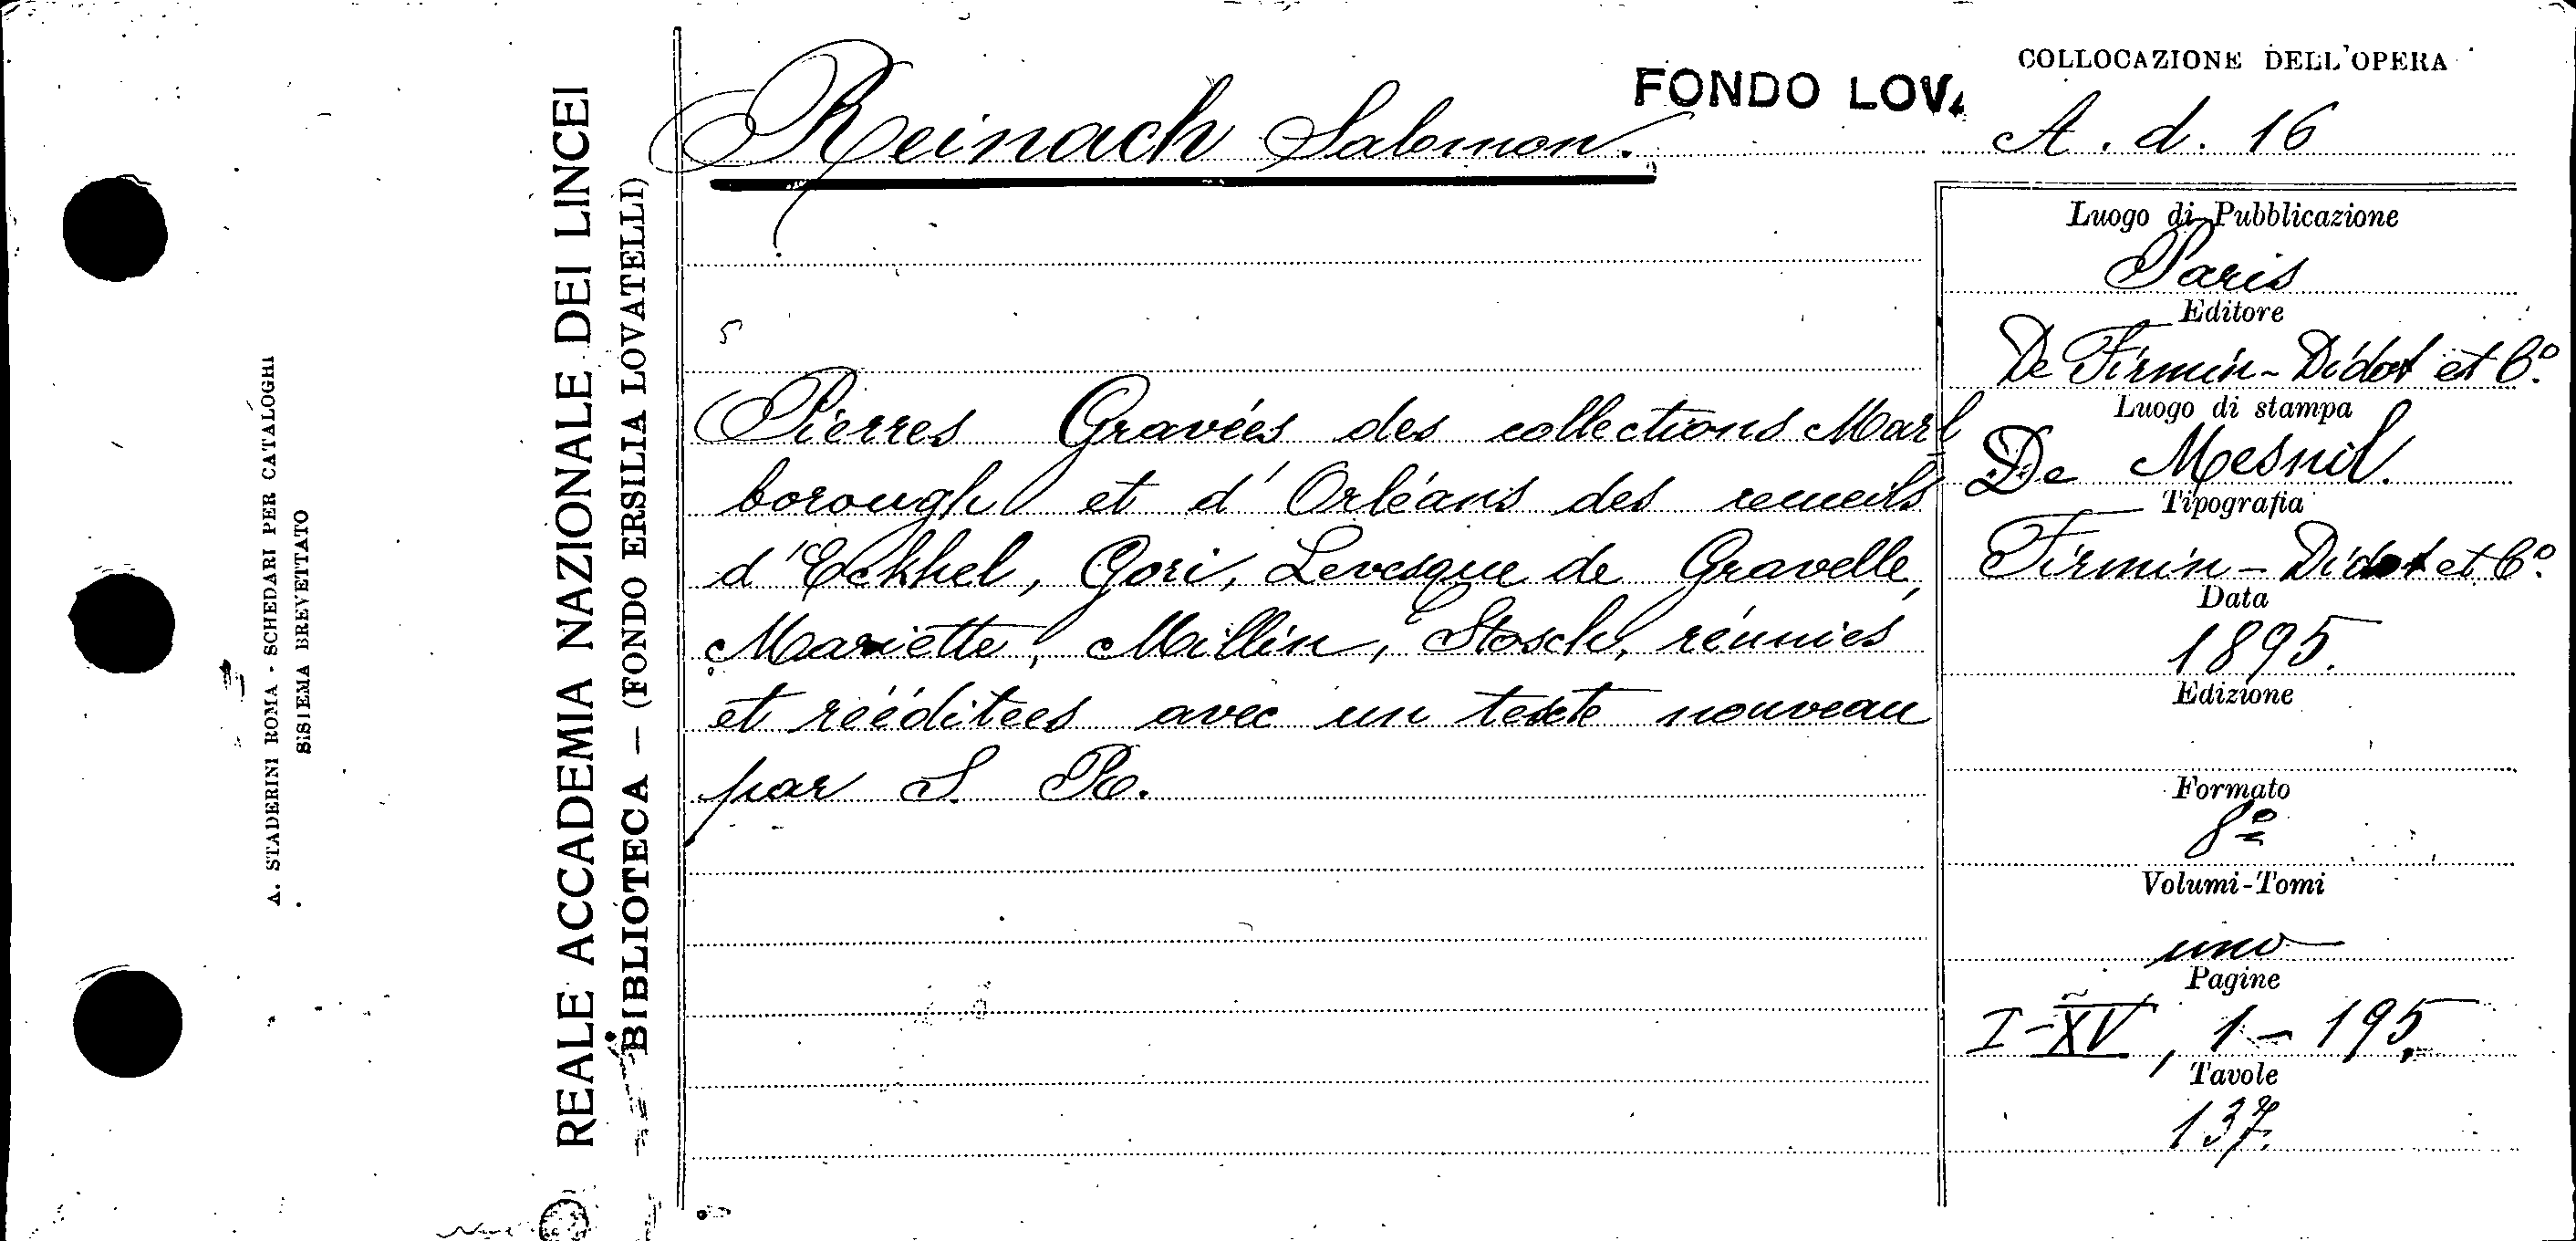 A. STADERINI ROMA - SCHEDARI PER CATALOGHI
SISTEMA BREVETTATO
REALE ACCADEMIA NAZIONALE DEI LINCEI
BIBLIOTECA — (FONDO ERSILIA LOVATELLI)
Reinach Salomon.
FONDO LOV
COLLOCAZIONE DELL'OPERA
A. d. 16
Pierres Gravées des collections Marl
borough et d'Orléans des recueils
d'Eckhel, Gori, Levesque de Gravelle,
Mariette, Millin, Stosch, réunies
et rééditees avec un texte nouveau
par S. R.
Luogo di Pubblicazione
Paris
Editore
De Firmin-Didot et C.º
Luogo di stampa
De Mesnil.
Tipografia
Firmin-Didot et C.º
Data
1895.
Edizione
Formato
8º
Volumi-Tomi
uno
Pagine
I-XV, 1-195.
Tavole
137.